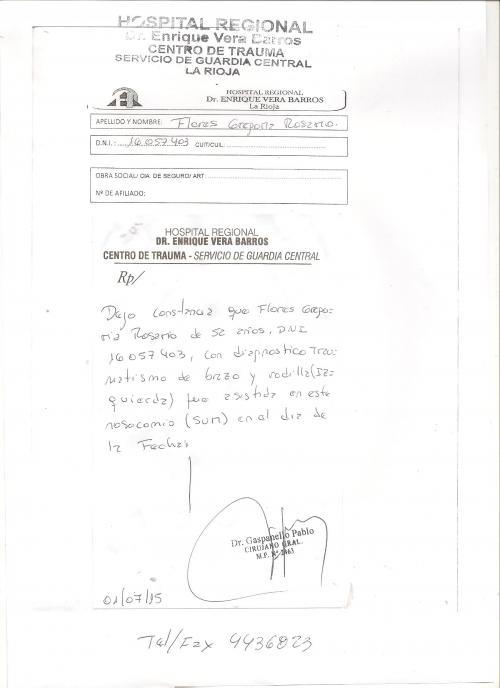 HOSPITAL REGIONAL
Dr. Enrique Vera Barros
CENTRO DE TRAUMA
SERVICIO DE GUARDIA CENTRAL
LA RIOJA
HOSPITAL REGIONAL
Dr. ENRIQUE VERA BARROS
La Rioja
APELLIDO Y NOMBRE: Flores Gregoria Rosario.
D.N.I.: 16.057403 CUIT/CUIL:
OBRA SOCIAL/ CIA. DE SEGURO/ ART:
Nº DE AFILIADO:
HOSPITAL REGIONAL
DR. ENRIQUE VERA BARROS
CENTRO DE TRAUMA - SERVICIO DE GUARDIA CENTRAL
Rp/
Dejo constancia que Flores Grego-
ria Rosario de 52 años, DNI
16057403, con diagnostico Trau-
matismo de brazo y rodilla (Iz-
quierda) fue asistida en este
nosocomio (SUM) en al dia de
la Fecha.
Dr. Gaspanello Pablo
CIRUJANO GRAL.
M.P. Nº 2463
01/07/15
Tel/Fax 4436823